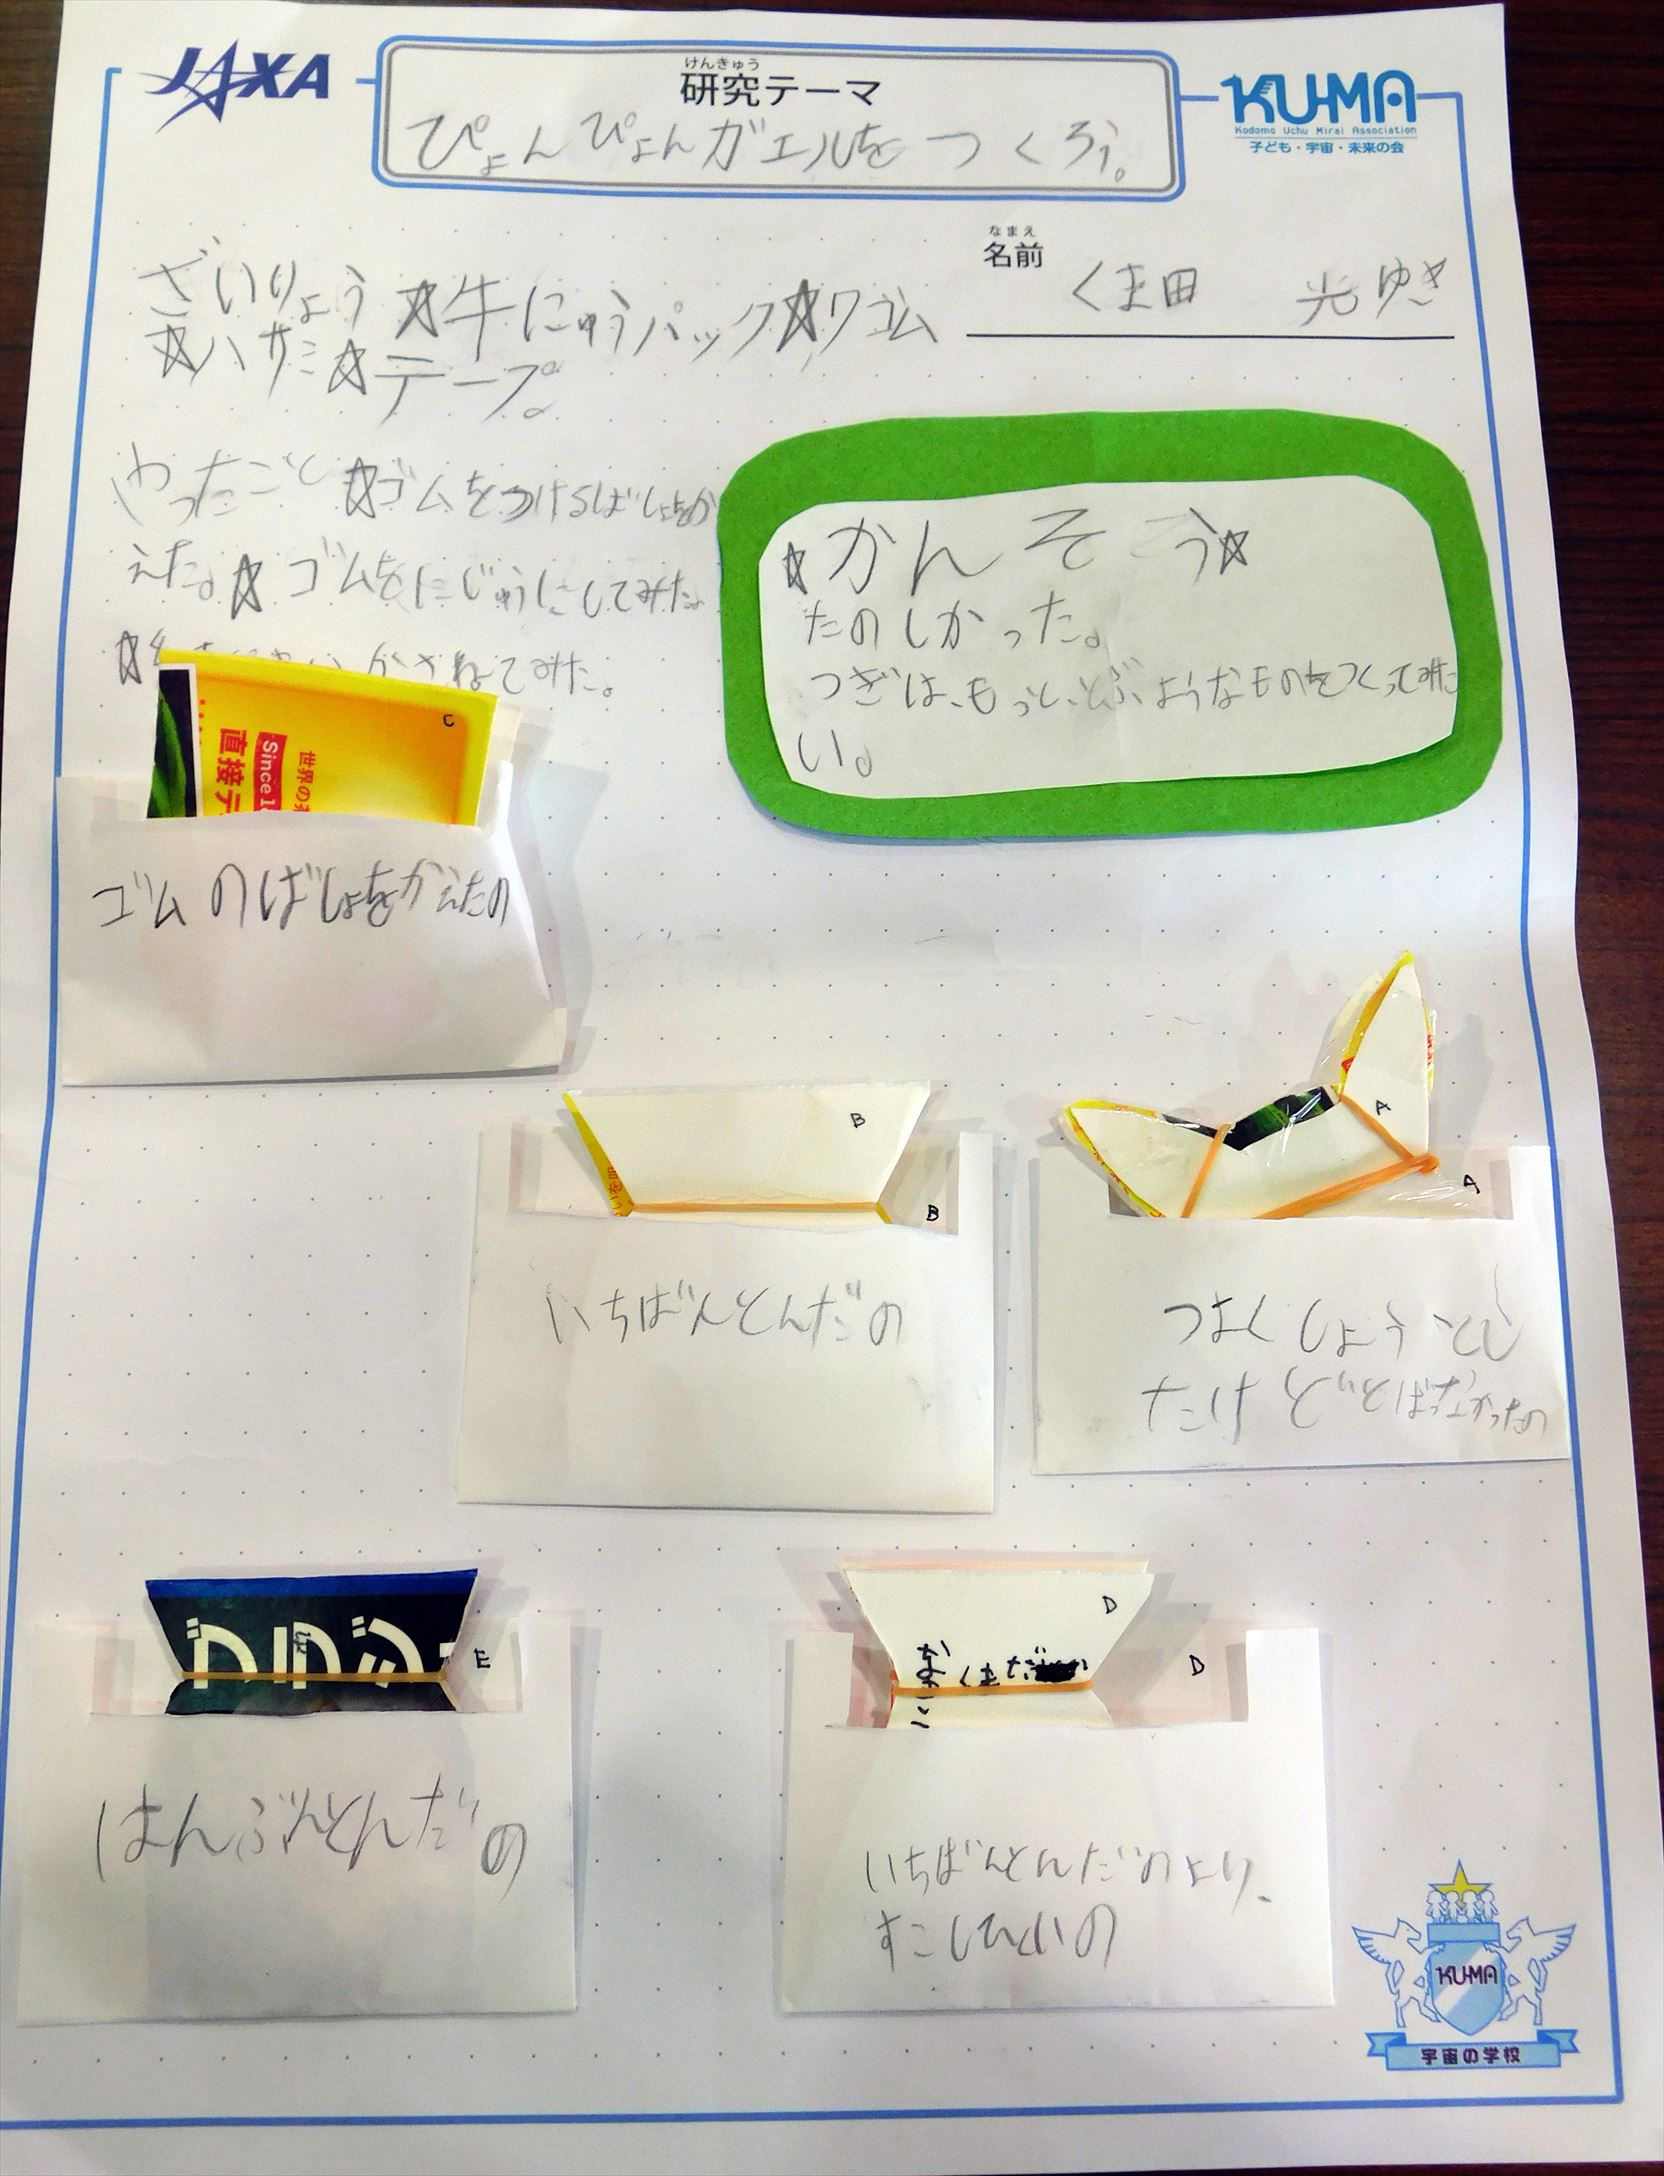 JAXA
けんきゅう
研究テーマ
ぴょんぴょんガエルをつくろう。
KU-MA
Kodomo Uchu Mirai Association
子ども・宇宙・未来の会
なまえ
名前
くま田 光ゆき
ざいりょう ☆牛にゅうパック☆ワゴム
☆ハサミ☆テープ
やったこと ☆ゴムをつけるばしょをか
えた。☆ゴムをにじゅうにしてみた。
かさねてみた。
☆かんそう☆
たのしかった。
つぎは、もっと、とぶようなものをつくってみた
い。
C
世界の
Since 1
直接テ
ゴムのばしょをかえたの
B
B
いちばんとんだの
A
A
つよくしようとし
たけどとばなかったの
E
はんぶんとんだの
D
D
くまだ
いちばんとんだのより、
すこしひくいの
KU-MA
宇宙の学校